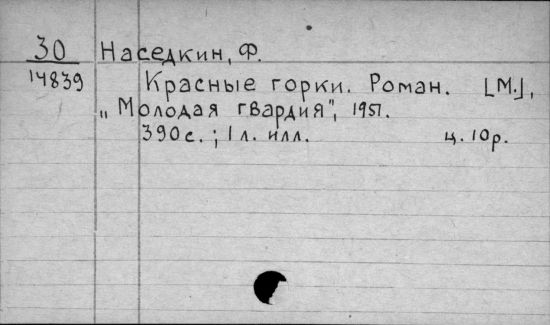 30 Наседкин, Ф.
14839 Красные горки. Роман. [М.],
„Молодая гвардия", 1951.
390 с.; 1 л. илл. ц. 10 р.